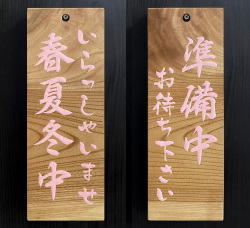 春夏冬中
いらっしゃいませ
準備中
お待ち下さい